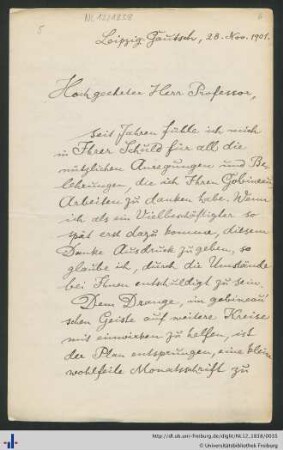 Nl. 12/1818
5
6
Leipzig-Gautzsch, 28. Nov. 1901.
Hochgeehrter Herr Professor,
seit Jahren fühle ich mich
in Ihrer Schuld für all die
nützlichen Anregungen und Be-
lehrungen, die ich Ihren Gobineau-
Arbeiten zu danken habe. Wenn
ich als ein Vielbeschäftigter so
spät erst dazu komme, diesem
Danke Ausdruck zu geben, so
glaube ich, durch die Umstände
bei Ihnen entschuldigt zu sein.
Dem Drange, im gobineau'
schen Geiste auf weitere Kreise
mit einwirken zu helfen, ist
der Plan entsprungen, eine kleine
wohlfeile Monatsschrift zu
http://dl.ub.uni-freiburg.de/diglit/NL12_1818/0005
© Universitätsbibliothek Freiburg